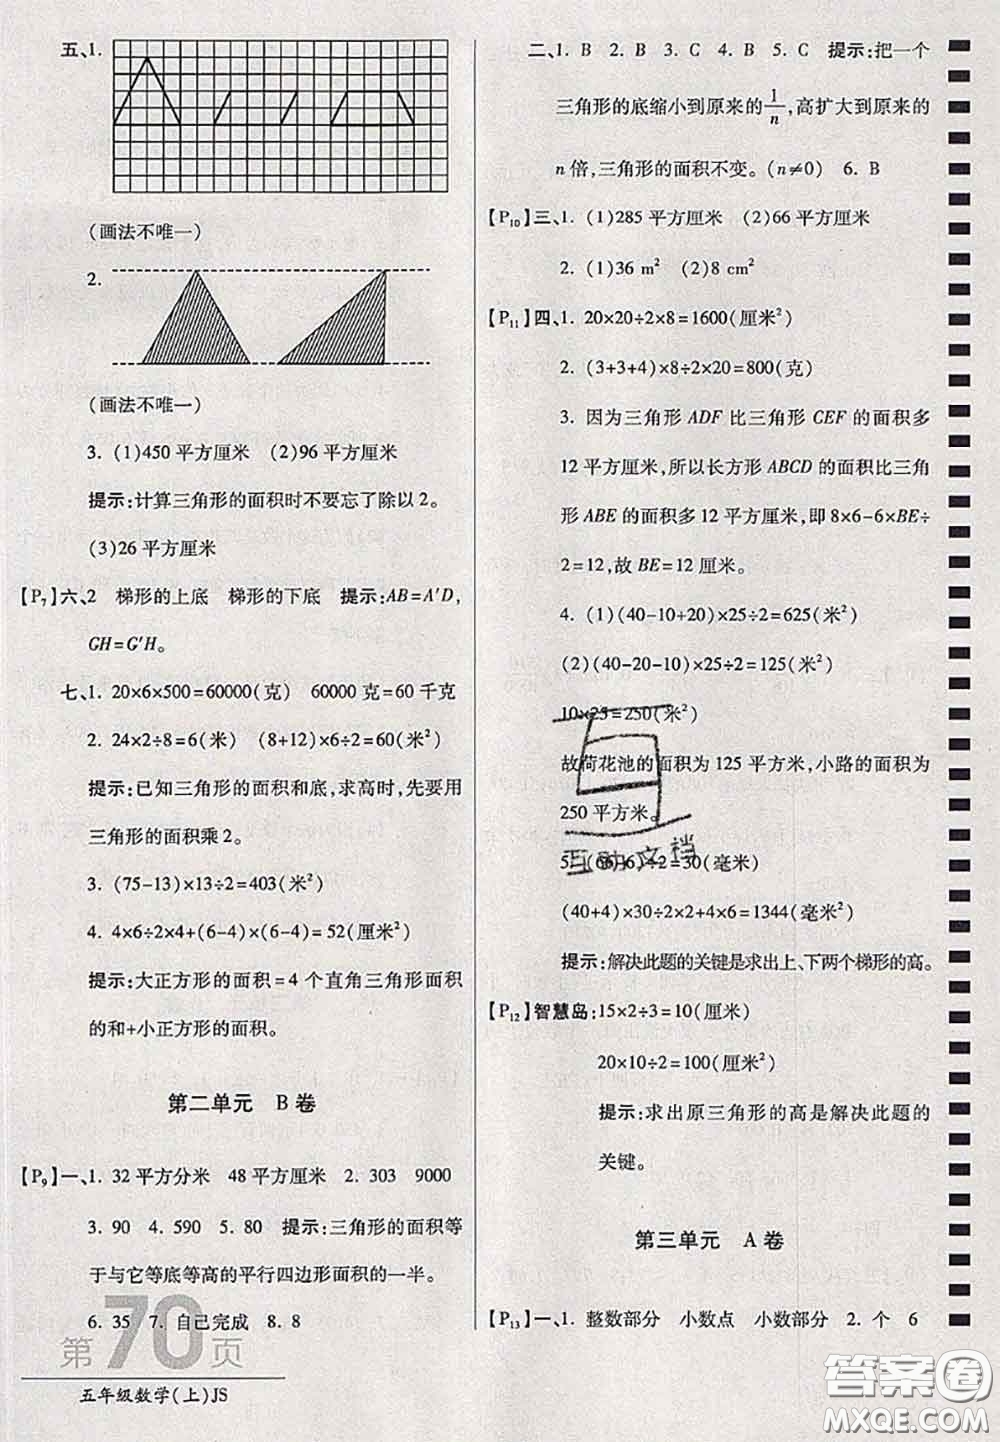 五、1.
(画法不唯一)
2.
(画法不唯一)
3. (1)450 平方厘米 (2)96 平方厘米
提示:计算三角形的面积时不要忘了除以 2。
(3)26 平方厘米
【P7】六、2 梯形的上底 梯形的下底 提示:AB=A′D,
GH=G′H。
七、1. 20×6×500=60000(克) 60000 克=60 千克
2. 24×2÷8=6(米) (8+12)×6÷2=60(米²)
提示:已知三角形的面积和底,求高时,要先用
三角形的面积乘 2。
3. (75-13)×13÷2=403(米²)
4. 4×6÷2×4+(6-4)×(6-4)=52(厘米²)
提示:大正方形的面积=4 个直角三角形面积
的和+小正方形的面积。
第二单元 B 卷
【P9】一、1. 32 平方分米 48 平方厘米 2. 303 9000
3. 90 4. 590 5. 80 提示:三角形的面积等
于与它等底等高的平行四边形面积的一半。
6. 35 7. 自己完成 8. 8
第70页
五年级数学(上)JS
二、1. B 2. B 3. C 4. B 5. C 提示:把一个
三角形的底缩小到原来的1/n,高扩大到原来的
n 倍,三角形的面积不变。(n≠0) 6. B
【P10】三、1. (1)285 平方厘米 (2)66 平方厘米
2. (1)36 m² (2)8 cm²
【P11】四、1. 20×20÷2×8=1600(厘米²)
2. (3+3+4)×8÷2×20=800(克)
3. 因为三角形 ADF 比三角形 CEF 的面积多
12 平方厘米,所以长方形 ABCD 的面积比三角
形 ABE 的面积多 12 平方厘米,即 8×6-6×BE÷
2=12,故 BE=12 厘米。
4. (1)(40-10+20)×25÷2=625(米²)
(2)(40-20-10)×25÷2=125(米²)
10×25=250(米²)
故荷花池的面积为 125 平方米,小路的面积为
250 平方米。
互动文档
5. (66-6)÷2=30(毫米)
(40+4)×30÷2×2+4×6=1344(毫米²)
提示:解决此题的关键是求出上、下两个梯形的高。
【P12】智慧岛:15×2÷3=10(厘米)
20×10÷2=100(厘米²)
提示:求出原三角形的高是解决此题的
关键。
第三单元 A 卷
【P13】一、1. 整数部分 小数点 小数部分 2. 个 6
答案圈
MXQE.COM